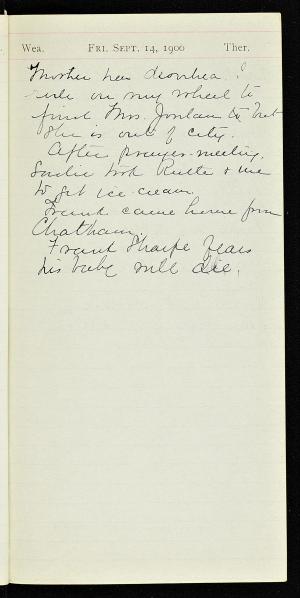 Wea. FRI. SEPT. 14, 1900 Ther.
Mother has diorrhea. I
ride on my wheel to
find Mrs. Jordan to but
she is out of city.
After prayer-meeting,
took Ruth & me
to get ice-cream.
Frank came home from
Chatham.
Frank Sharpe fears
his baby will die.